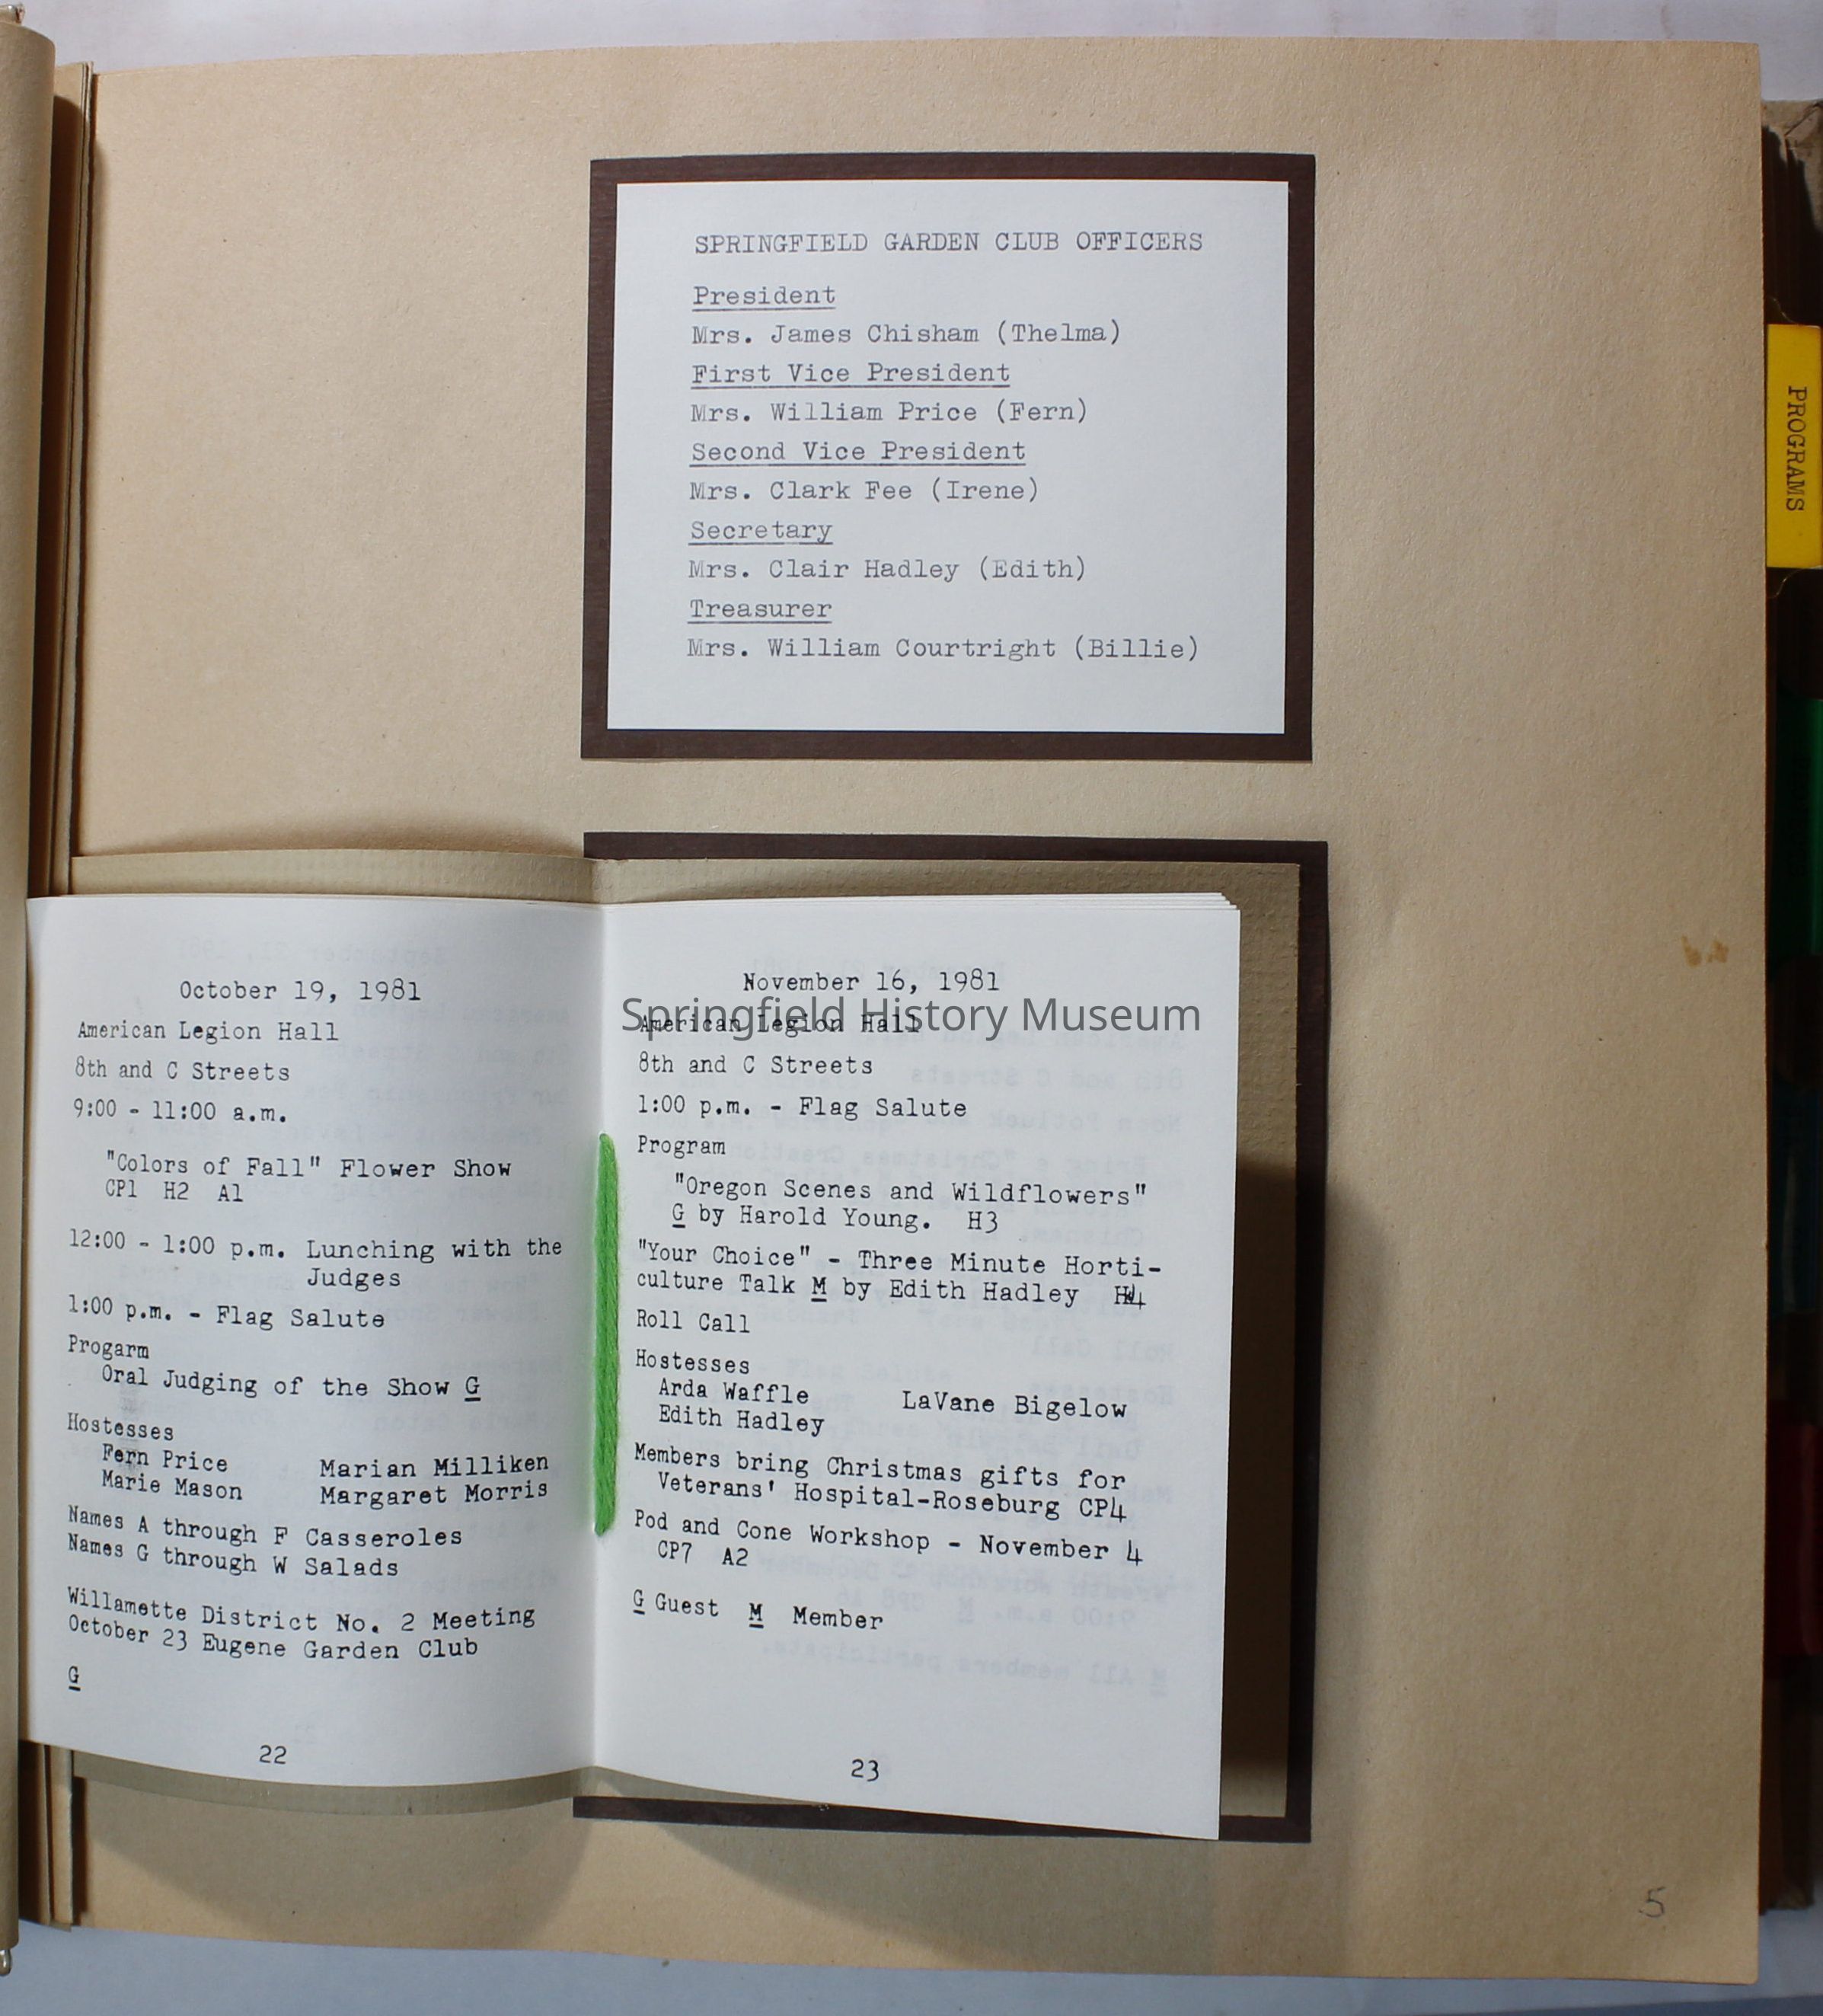 SPRINGFIELD GARDEN CLUB OFFICERS
President
Mrs. James Chisham (Thelma)
First Vice President
Mrs. William Price (Fern)
Second Vice President
Mrs. Clark Fee (Irene)
Secretary
Mrs. Clair Hadley (Edith)
Treasurer
Mrs. William Courtright (Billie)
PROGRAMS
October 19, 1981
American Legion Hall
8th and C Streets
9:00 - 11:00 a.m.
"Colors of Fall" Flower Show
CP1 H2 A1
12:00 - 1:00 p.m. Lunching with the
Judges
1:00 p.m. - Flag Salute
Progarm
Oral Judging of the Show G
Hostesses
Fern Price Marian Milliken
Marie Mason Margaret Morris
Names A through F Casseroles
Names G through W Salads
Willamette District No. 2 Meeting
October 23 Eugene Garden Club
G
22
November 16, 1981
Springfield History Museum
American Legion Hall
8th and C Streets
1:00 p.m. - Flag Salute
Program
"Oregon Scenes and Wildflowers"
G by Harold Young. H3
"Your Choice" - Three Minute Horti-
culture Talk M by Edith Hadley H4
Roll Call
Hostesses
Arda Waffle LaVane Bigelow
Edith Hadley
Members bring Christmas gifts for
Veterans' Hospital-Roseburg CP4
Pod and Cone Workshop - November 4
CP7 A2
G Guest M Member
23
5